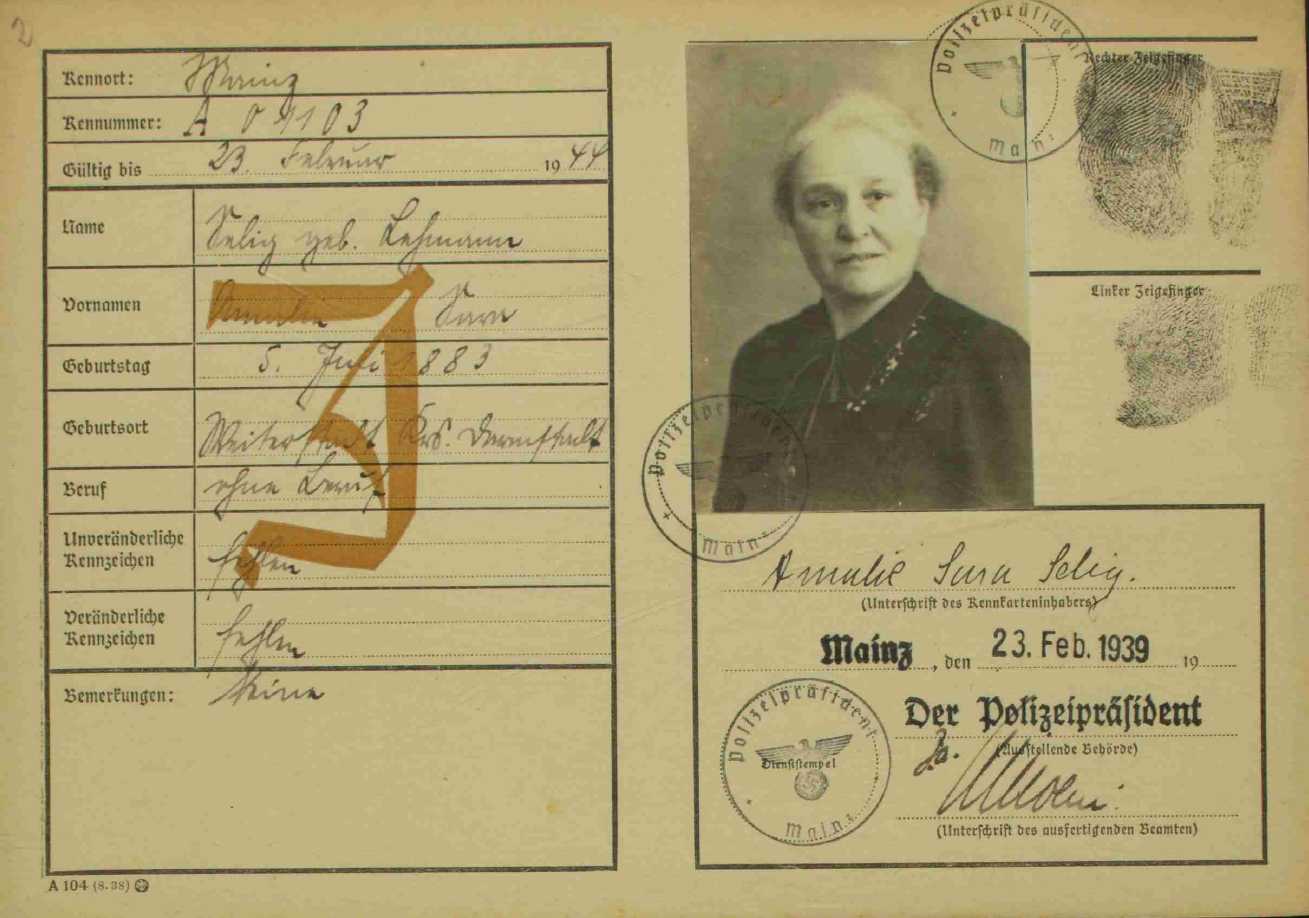 2
Kennort: Mainz
Kennummer: A 01103
Gültig bis 23. Februar 1944
Name Selig geb. Lehmann
Vornamen Amalie Sara
Geburtstag 5. Juli 1883
Geburtsort Weiterstadt Krs. Darmstadt
Beruf ohne Beruf
Unveränderliche
Kennzeichen fehlen
Veränderliche
Kennzeichen fehlen
Bemerkungen: Keine
J
A 104 (8. 38)
Polizeipräsident
Mainz
Rechter Zeigefinger
Linker Zeigefinger
Polizeipräsident
Mainz
Amalie Sara Selig.
(Unterschrift des Kennkarteninhabers)
Mainz, den 23. Feb. 1939 19
Der Polizeipräsident
(Ausstellende Behörde)
Polizeipräsident
Dienststempel
Mainz
(Unterschrift des ausfertigenden Beamten)